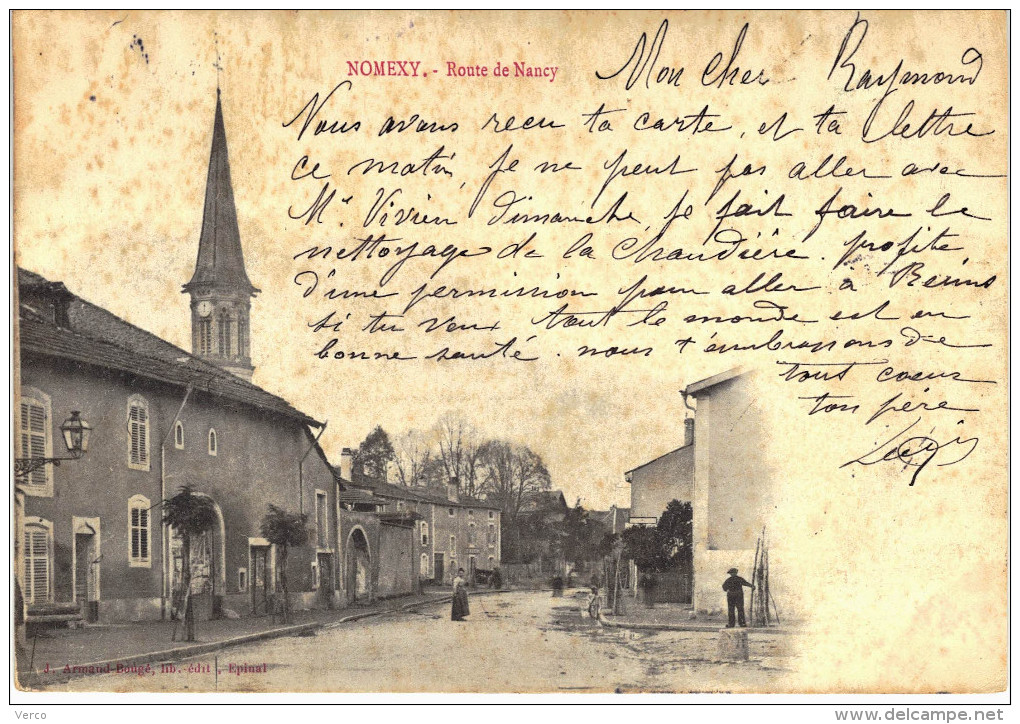 NOMEXY. - Route de Nancy
Mon Cher Raymond
Nous avons recu ta carte, et ta lettre
ce matin, Je ne peut pas aller avec
Mr Vivien dimanche, Je fait faire le
nettoyage de la Chaudière. profite
d'une permission pour aller à Reims
si tu veux tout le monde est en
bonne santé. nous t'embrassons de
tout coeur
ton père
Louis
J. Armand-Bougé, lib.-édit, Epinal
Verco
www.delcampe.net